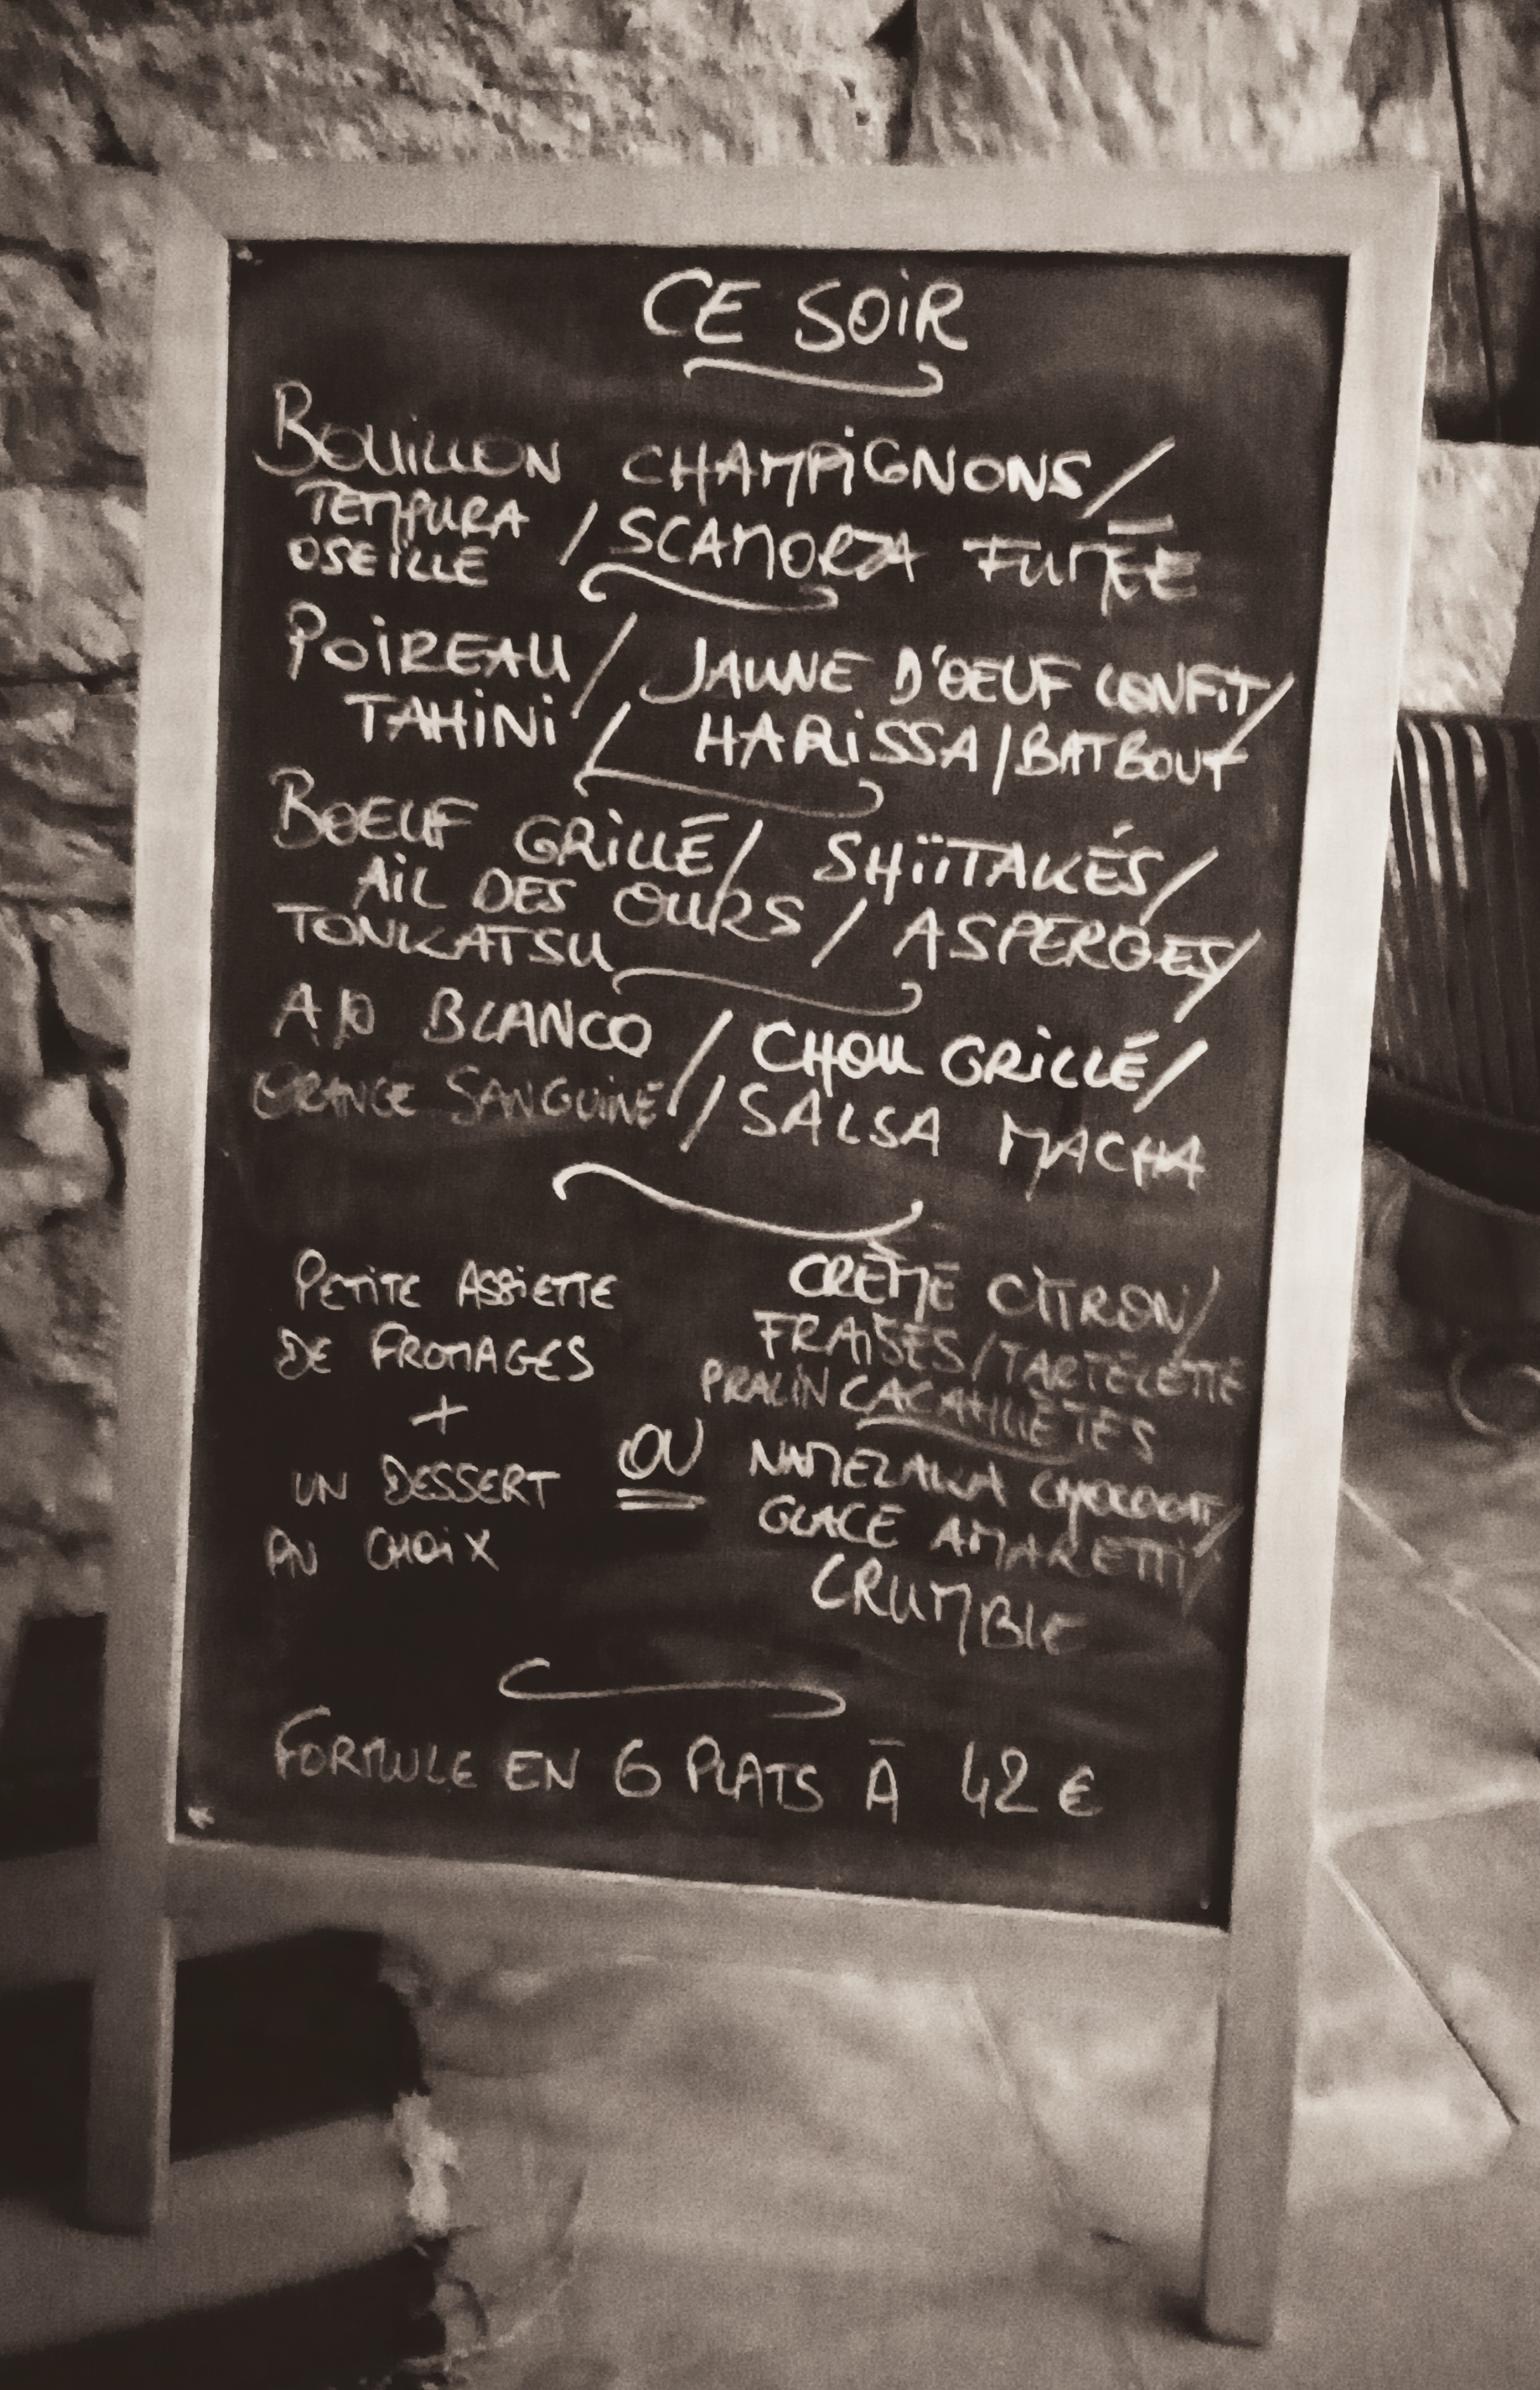 CE SOIR
BOUILLON CHAMPIGNONS/
TEMPURA
OSEILLE / SCAMORZA FUMÉE
POIREAU / JAUNE D'OEUF CONFIT/
TAHINI / HARISSA/BATBOUT
BOEUF GRILLÉ/ SHIÏTAKÉS/
AIL DES OURS / ASPERGES/
TONKATSU
AJO BLANCO / CHOU GRILLÉ/
ORANGE SANGUINE / SALSA MACHA
PETITE ASSIETTE
DE FROMAGES
+
UN DESSERT
AU CHOIX
OU
CRÈME CITRON/
FRAISES/TARTELETTE
PRALIN CACAHUÈTES
NAMELAKA CHOCOLAT/
GLACE AMARETTI/
CRUMBLE
FORMULE EN 6 PLATS À 42 €